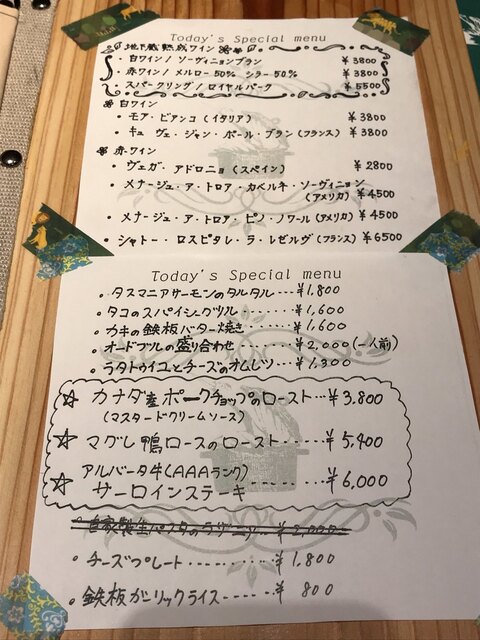 Today's Special menu
地下蔵熟成ワイン
・白ワイン/ソーヴィニョンブラン ¥3800
・赤ワイン/メルロー50% シラー50% ¥3800
・スパークリング/ロイヤルパーク ¥5500
白ワイン
・モア・ビアンコ(イタリア) ¥3800
・キュヴェ・ジャン・ポール・ブラン(フランス) ¥3800
赤ワイン
・ヴェガ・アドロニョ(スペイン) ¥2800
・メナージュ・ア・トロア・カベルネ・ソーヴィニョン
(アメリカ) ¥4500
・メナージュ・ア・トロア・ピノ・ノワール(アメリカ) ¥4500
・シャトー・ロスピタレ・ラ・レゼルヴ(フランス) ¥6500
Today's Special menu
・タスマニアサーモンのタルタル---¥1,800
・タコのスパイシーグリル------¥1,600
・カキの鉄板バター焼き------¥1,600
・オードブルの盛り合わせ------¥2,000(一人前)
・ラタトゥイユとチーズのオムレツ---¥1,300
☆ カナダ産ポークチョップのロースト…¥3,800
(マスタードクリームソース)
☆ マグレ鴨ロースのロースト------¥5,400
☆ アルバータ牛(AAAランク)
サーロインステーキ ------¥6,000
・チーズプレート----------¥1,800
・鉄板ガーリックライス-----¥800